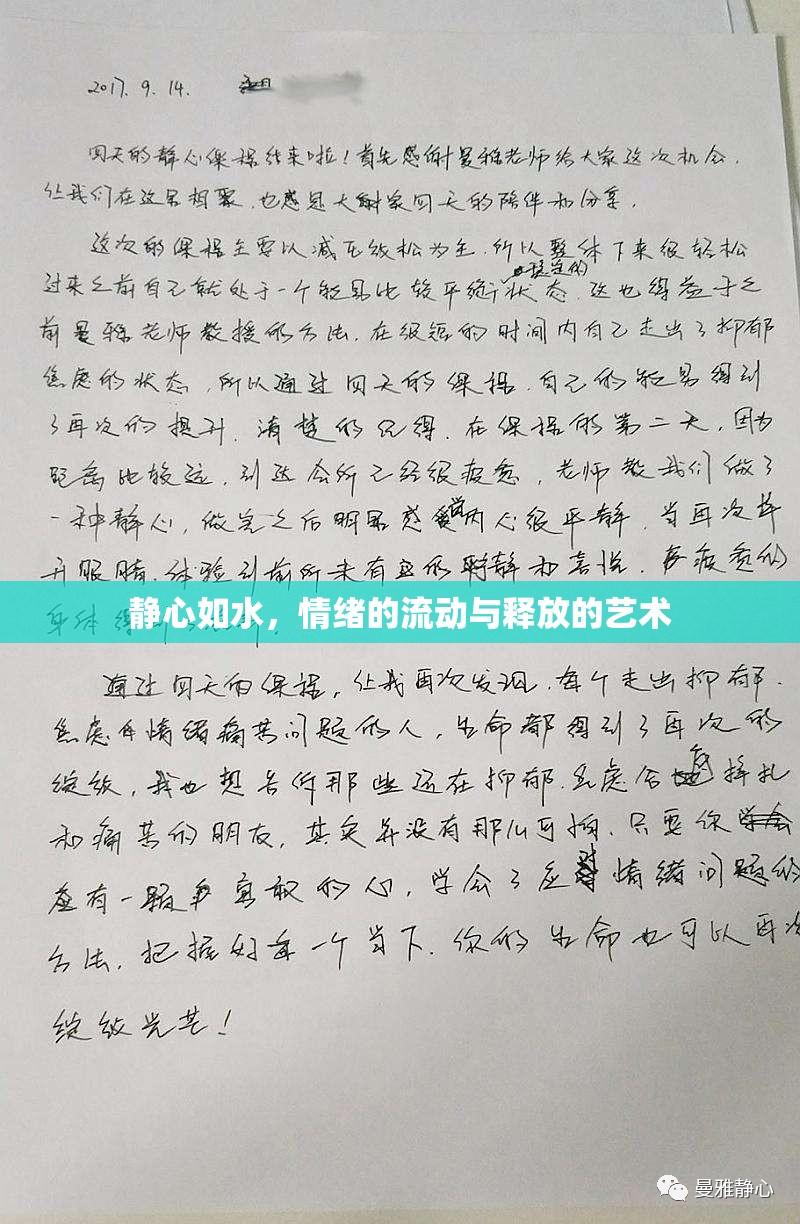 2017. 9. 14.
四天的静心课程结束啦！首先感谢曼雅老师给大家这次机会，
让我们在这里相聚，也感恩大家四天的陪伴和分享。
这次的课程主要以减压放松为主，所以整体下来很轻松
过来之前自己就处于一个 比较平衡 的状态，这也得益于之
前曼雅老师教授的方法，在很短的时间内自己走出了抑郁
焦虑的状态，所以通过四天的课程，自己的 得到
了再次的提升。清楚的记得，在课程的第二天，因为
距离比较远，到达会所已经很疲惫，老师教我们做了
一种静心，做完之后明显感觉内心很平静，当再次睁
开眼睛，体验到前所未有 的 静和喜悦， 疲惫的
身体得
静心如水，情绪的流动与释放的艺术
通过四天的课程，让我再次发现，每个走出抑郁．
焦虑 情绪痛苦问题的人，生命都得到了再次的
绽放，我也想告诉那些还在抑郁．焦虑 挣扎
和痛苦的朋友，其实并没有那么可怕，只要你
有一颗 勇敢的心，学会了应对情绪问题的
方法，把握好每一个当下，你的生命也可以再次
绽放光芒！
曼雅静心